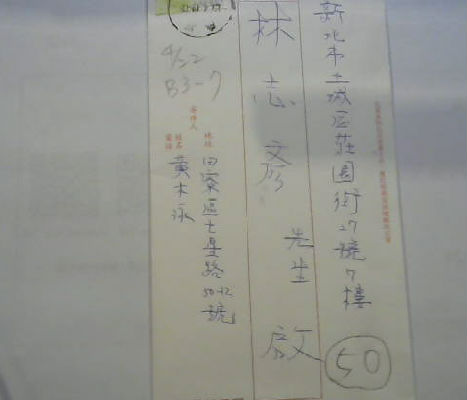 新北市土城區莊園街27號7樓
林志彥
先生 啟
50
寄件人
地址
田寮區七星路50-12號
姓名
黃木永
4/22
B3-7